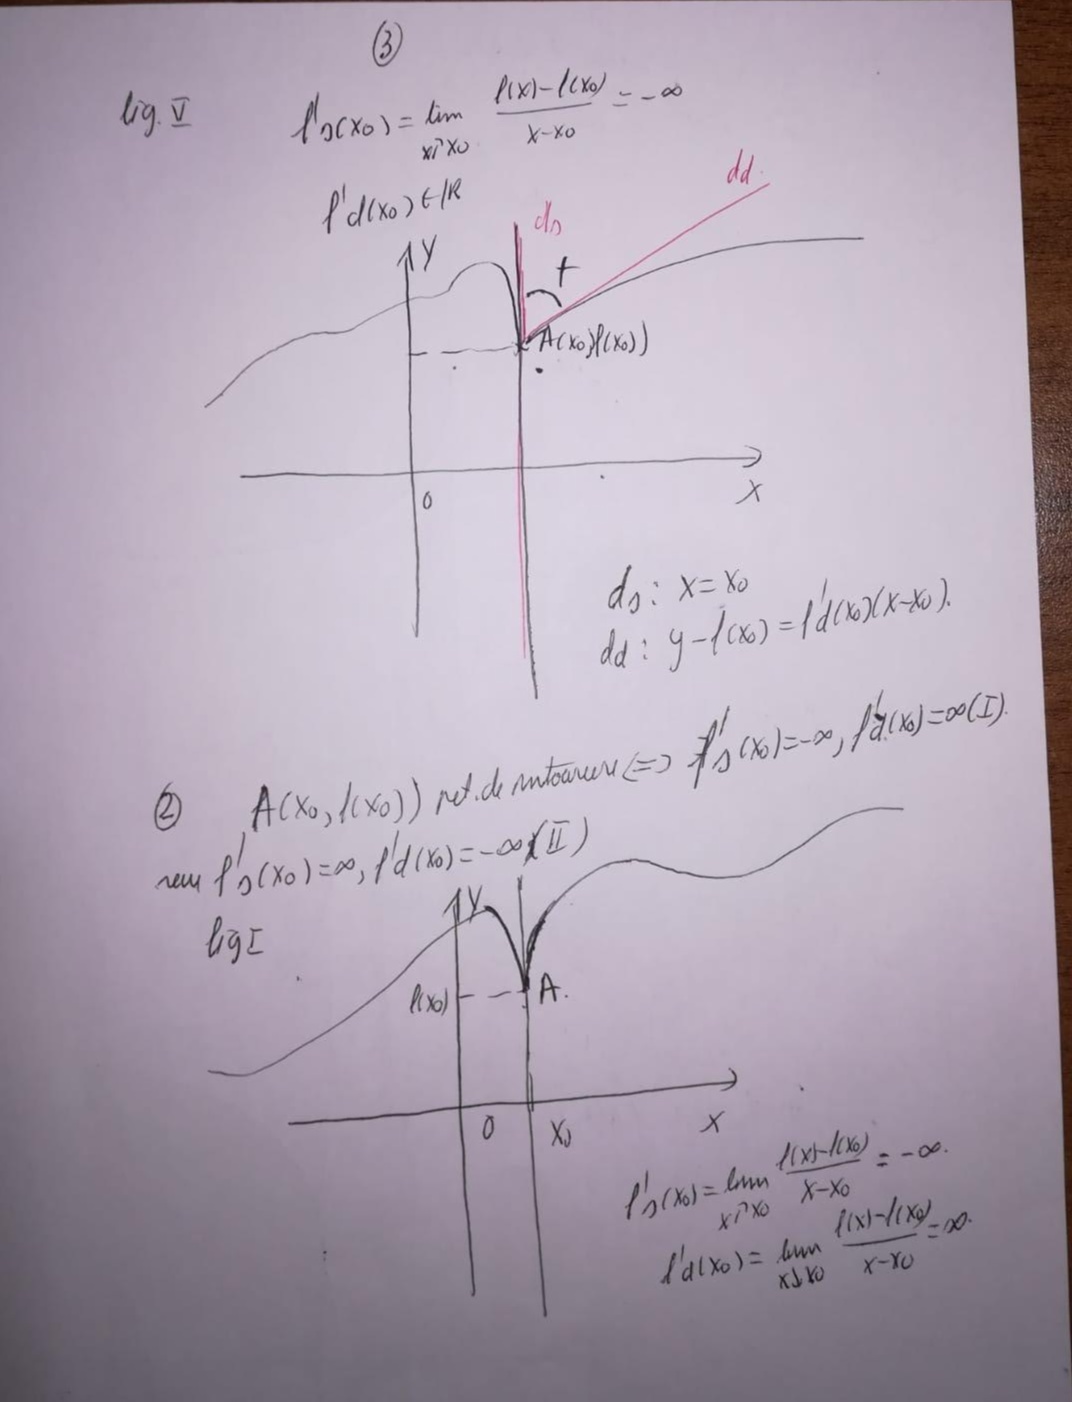 ③
fig. V f's(x0) = lim x↗x0 (f(x)-f(x0))/(x-x0) = -∞
f'd(x0) ∈ ℝ
dd.
ds
y
t
A(x0, f(x0))
0
x
ds: x = x0
dd: y-f(x0) = f'd(x0)(x-x0).
② A(x0, f(x0)) pct. de intoarcere <=> f's(x0)=-∞, f'd(x0)=∞ (I).
sau f's(x0)=∞, f'd(x0)=-∞ (II)
fig I
y
f(x0)
A.
0 x0 x
f's(x0) = lim x↗x0 (f(x)-f(x0))/(x-x0) = -∞.
f'd(x0) = lim x↘x0 (f(x)-f(x0))/(x-x0) = ∞.